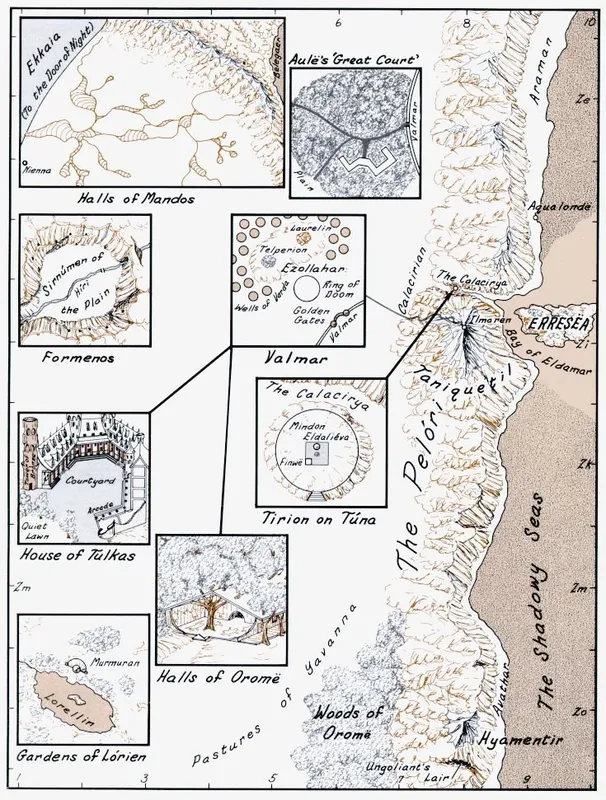 6
8
10
Ekkaia
(To the Door of Night)
Belegaer
Nienna
Halls of Mandos
Aulë's 'Great Court'
Valmar
Plain
Araman
Ze
Alqualondë
Sirnúmen of
Híri
the Plain
Formenos
Laurelin
Telperion
Ezollahar
Ring of
Doom
Wells of Varda
Golden
Gates
Valmar
Valmar
Calacirian
The Calacirya
Ilmaren
ERRESËA
Zi
Bay of Eldamar
Taniquetil
The Calacirya
Mindon
Eldaliéva
Finwë
Tirion on Túna
The Pelóri
Zk
Courtyard
Arcade
Quiet
Lawn
House of Tulkas
The Shadowy Seas
Zm
Zm
Halls of Oromë
Murmuran
Lorellin
Gardens of Lórien
Pastures of Yavanna
Woods of
Oromë
Avathar
Zo
Hyarmentir
Ungoliant's
Lair
1
3
5
7
9